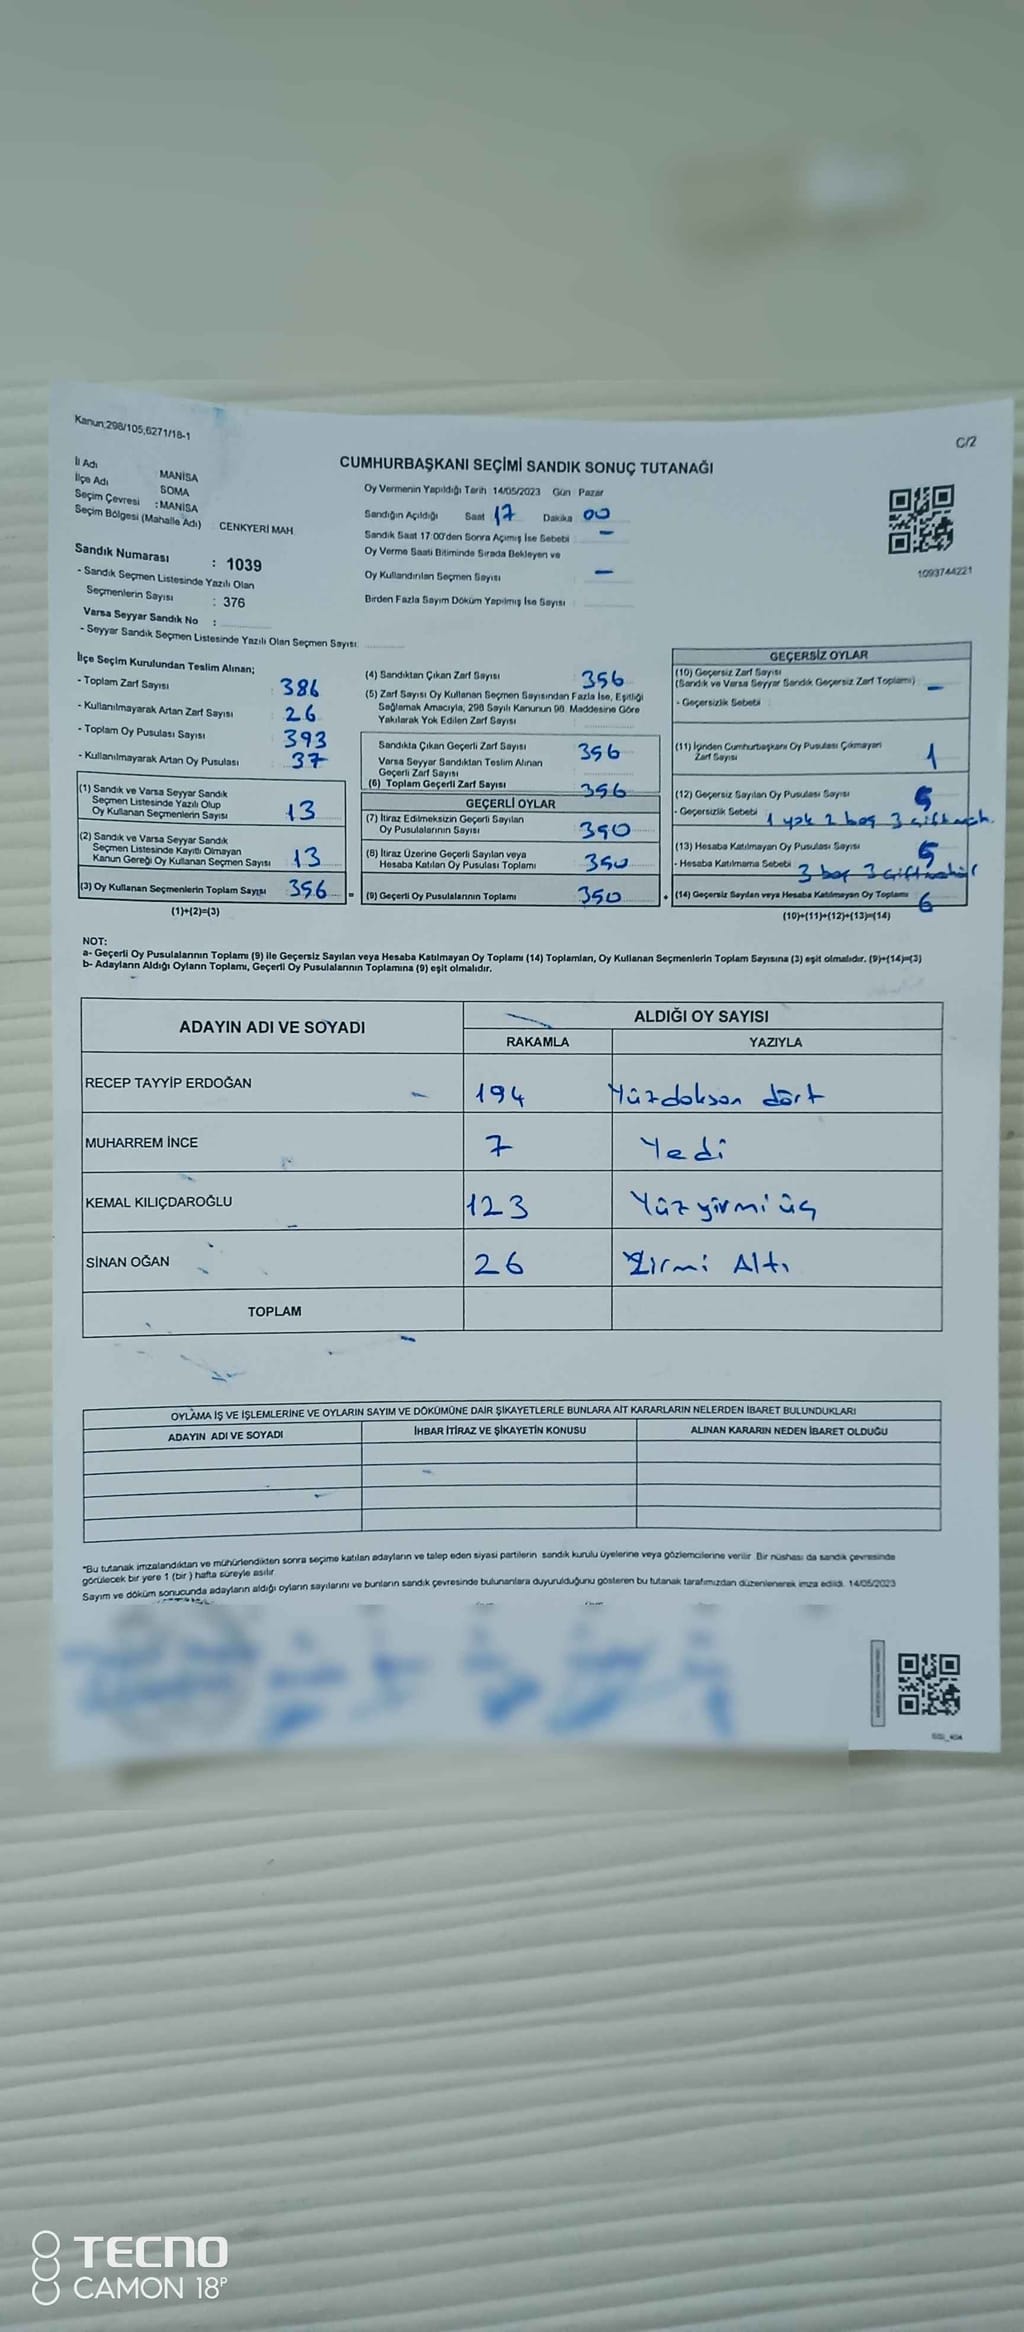 Kanun;298/105,6271/18-1
C/2
CUMHURBAŞKANI SEÇİMİ SANDIK SONUÇ TUTANAĞI
İl Adı MANİSA
İlçe Adı SOMA
Seçim Çevresi : MANİSA
Seçim Bölgesi (Mahalle Adı) CENKYERİ MAH
Sandık Numarası : 1039
- Sandık Seçmen Listesinde Yazılı Olan
Seçmenlerin Sayısı : 376
Varsa Seyyar Sandık No :
- Seyyar Sandık Seçmen Listesinde Yazılı Olan Seçmen Sayısı
Oy Vermenin Yapıldığı Tarih 14/05/2023 Gün Pazar
Sandığın Açıldığı Saat 17 Dakika 00
Sandık Saat 17:00'den Sonra Açımış İse Sebebi -
Oy Verme Saati Bitiminde Sırada Bekleyen ve
Oy Kullandırılan Seçmen Sayısı -
Birden Fazla Sayım Döküm Yapılmış İse Sayısı
1093744221
İlçe Seçim Kurulundan Teslim Alınan;
- Toplam Zarf Sayısı : 386
- Kullanılmayarak Artan Zarf Sayısı : 26
- Toplam Oy Pusulası Sayısı 393
- Kullanılmayarak Artan Oy Pusulası 37
(1) Sandık ve Varsa Seyyar Sandık
Seçmen Listesinde Yazılı Olup
Oy Kullanan Seçmenlerin Sayısı 13
(2) Sandık ve Varsa Seyyar Sandık
Seçmen Listesinde Kayıtlı Olmayan
Kanun Gereği Oy Kullanan Seçmen Sayısı 13
(3) Oy Kullanan Seçmenlerin Toplam Sayısı 356 =
(1)+(2)=(3)
(4) Sandıktan Çıkan Zarf Sayısı 356
(5) Zarf Sayısı Oy Kullanan Seçmen Sayısından Fazla İse, Eşitliği
Sağlamak Amacıyla, 298 Sayılı Kanunun 98. Maddesine Göre
Yakılarak Yok Edilen Zarf Sayısı
Sandıkta Çıkan Geçerli Zarf Sayısı 356
Varsa Seyyar Sandıktan Teslim Alınan
Geçerli Zarf Sayısı
(6) Toplam Geçerli Zarf Sayısı 356
GEÇERLİ OYLAR
(7) İtiraz Edilmeksizin Geçerli Sayılan
Oy Pusulalarının Sayısı 350
(8) İtiraz Üzerine Geçerli Sayılan veya
Hesaba Katılan Oy Pusulası Toplamı 350
(9) Geçerli Oy Pusulalarının Toplamı 350 +
GEÇERSİZ OYLAR
(10) Geçersiz Zarf Sayısı
(Sandık ve Varsa Seyyar Sandık Geçersiz Zarf Toplamı) -
- Geçersizlik Sebebi
(11) İçinden Cumhurbaşkanı Oy Pusulası Çıkmayan
Zarf Sayısı 1
(12) Geçersiz Sayılan Oy Pusulası Sayısı 5
- Geçersizlik Sebebi 1 yok 2 boş 3
(13) Hesaba Katılmayan Oy Pusulası Sayısı 5
- Hesaba Katılmama Sebebi 3 boş 3
(14) Geçersiz Sayılan veya Hesaba Katılmayan Oy Toplamı 6
(10)+(11)+(12)+(13)=(14)
NOT:
a- Geçerli Oy Pusulalarının Toplamı (9) ile Geçersiz Sayılan veya Hesaba Katılmayan Oy Toplamı (14) Toplamları, Oy Kullanan Seçmenlerin Toplam Sayısına (3) eşit olmalıdır. (9)+(14)=(3)
b- Adayların Aldığı Oyların Toplamı, Geçerli Oy Pusulalarının Toplamına (9) eşit olmalıdır.
ADAYIN ADI VE SOYADI
ALDIĞI OY SAYISI
RAKAMLA YAZIYLA
RECEP TAYYİP ERDOĞAN 194 Yüzdoksan dört
MUHARREM İNCE 7 Yedi
KEMAL KILIÇDAROĞLU 123 Yüz yirmi üç
SİNAN OĞAN 26 Yirmi Altı
TOPLAM
OYLAMA İŞ VE İŞLEMLERİNE VE OYLARIN SAYIM VE DÖKÜMÜNE DAİR ŞİKAYETLERLE BUNLARA AİT KARARLARIN NELERDEN İBARET BULUNDUKLARI
ADAYIN ADI VE SOYADI İHBAR İTİRAZ VE ŞİKAYETİN KONUSU ALINAN KARARIN NEDEN İBARET OLDUĞU
*Bu tutanak imzalandıktan ve mühürlendikten sonra seçime katılan adayların ve talep eden siyasi partilerin sandık kurulu üyelerine veya gözlemcilerine verilir. Bir nüshası da sandık çevresinde
görülecek bir yere 1 (bir) hafta süreyle asılır.
Sayım ve döküm sonucunda adayların aldığı oyların sayılarını ve bunların sandık çevresinde bulunanlara duyurulduğunu gösteren bu tutanak tarafımızdan düzenlenerek imza edildi. 14/05/2023
TECNO
CAMON 18P